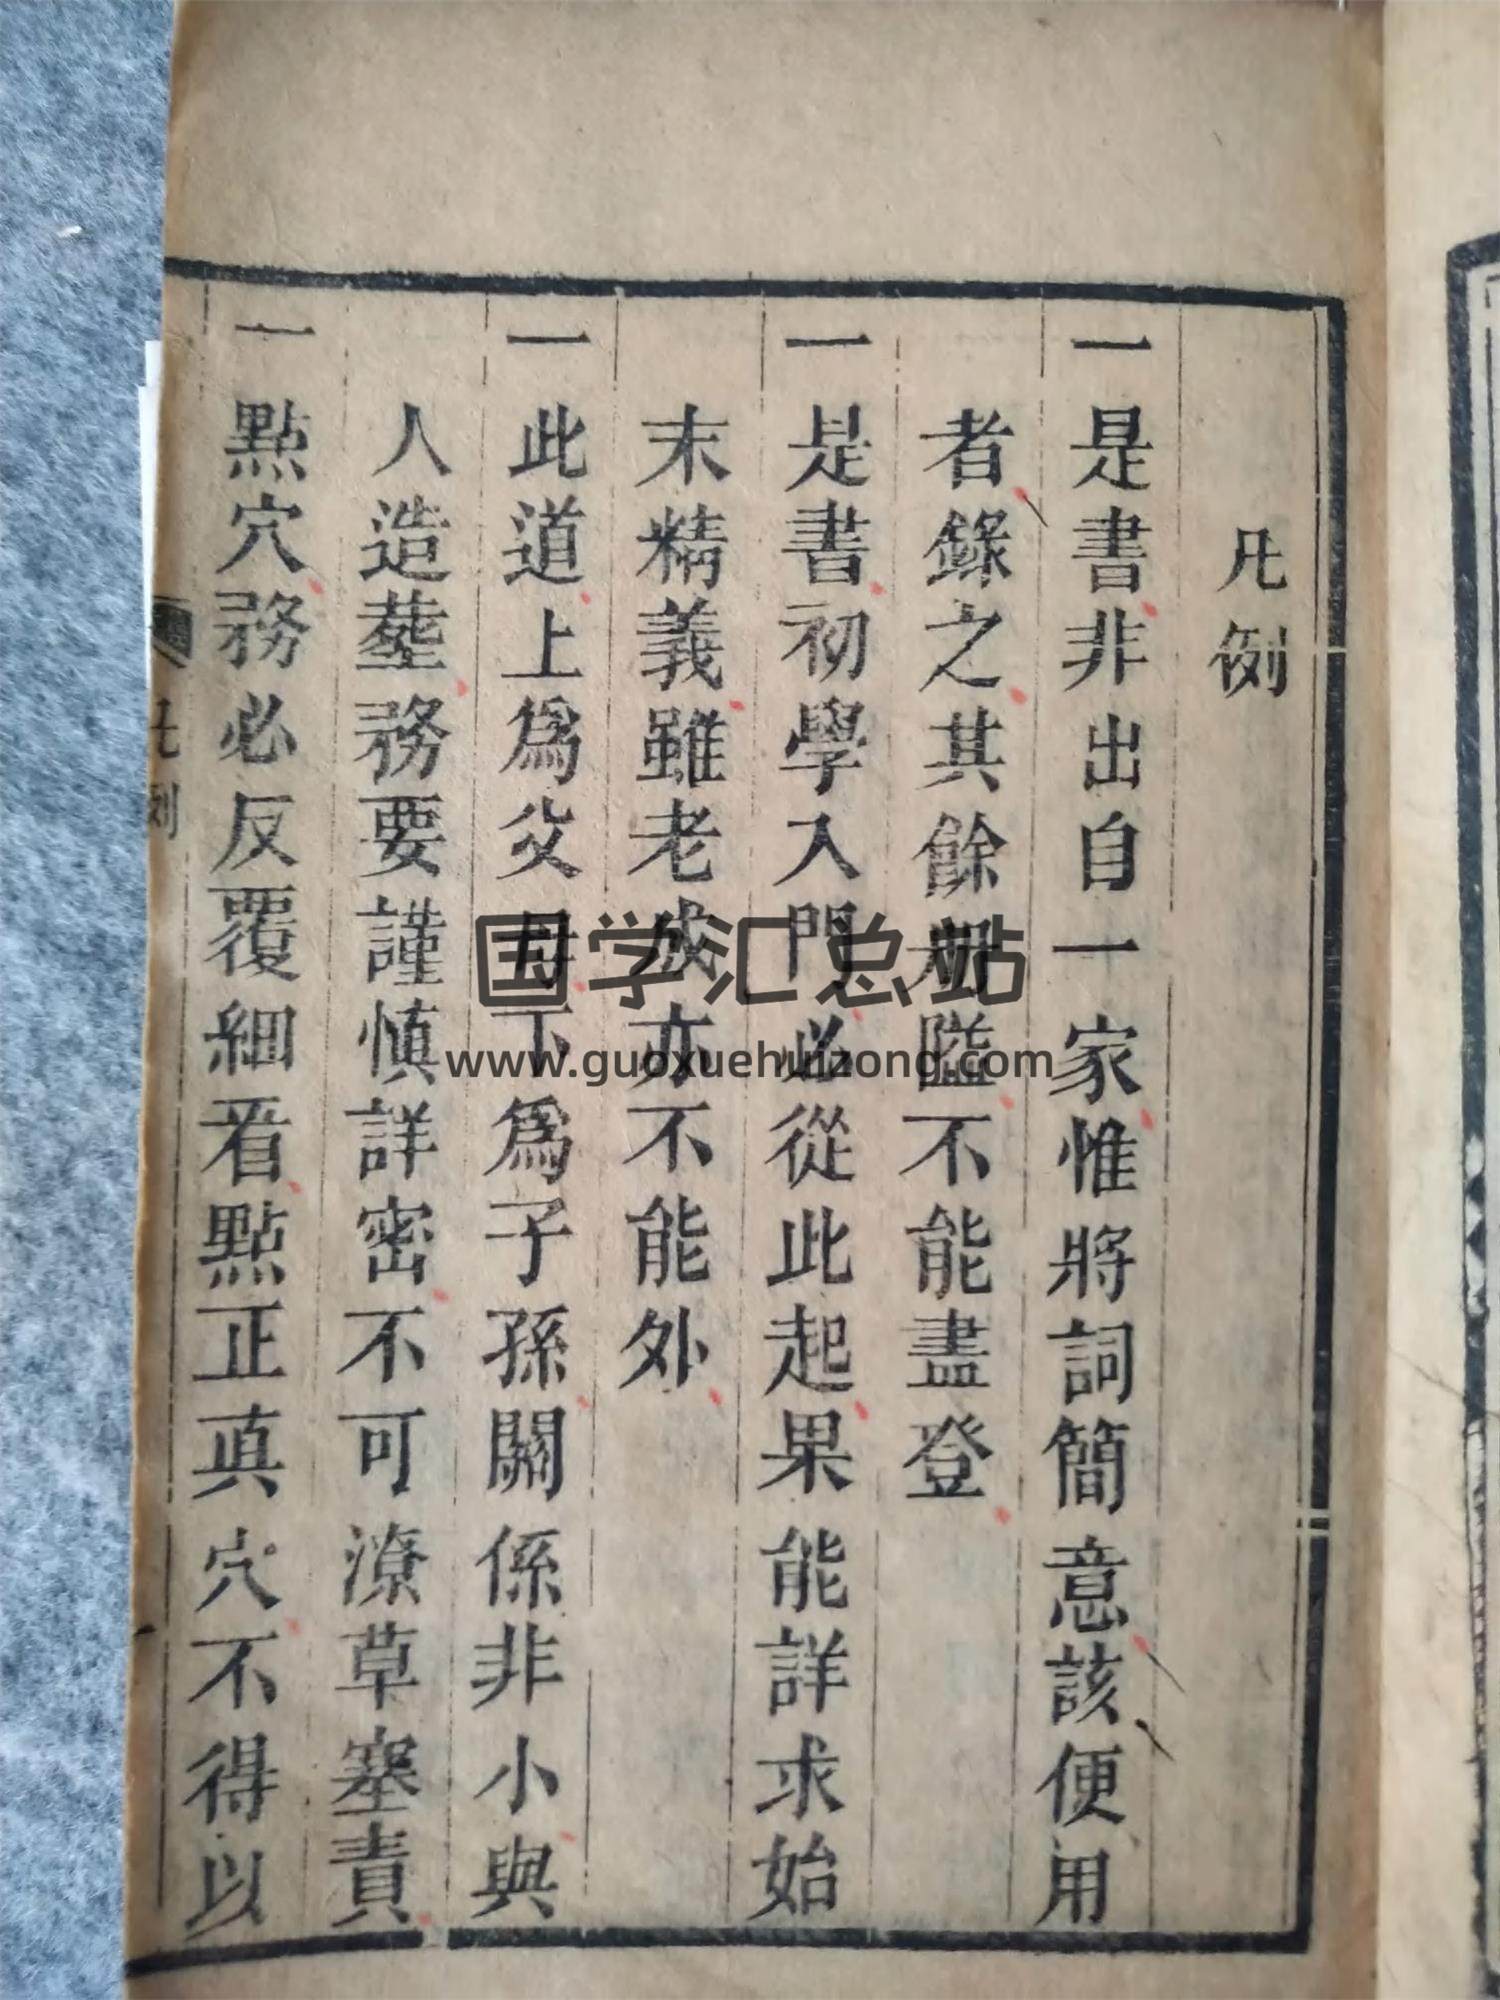 凡例
一是書非出自一家惟將詞簡意該便用
者錄之其餘冊隘不能盡登
一是書初學入門必從此起果能詳求始
末精義雖老成亦不能外
一此道上爲父母下爲子孫關係非小與
人造塟務要謹慎詳密不可潦草塞責
一點穴務必反覆細看點正真穴不得以
凡例
国学汇总站
www.guoxuehuizong.com